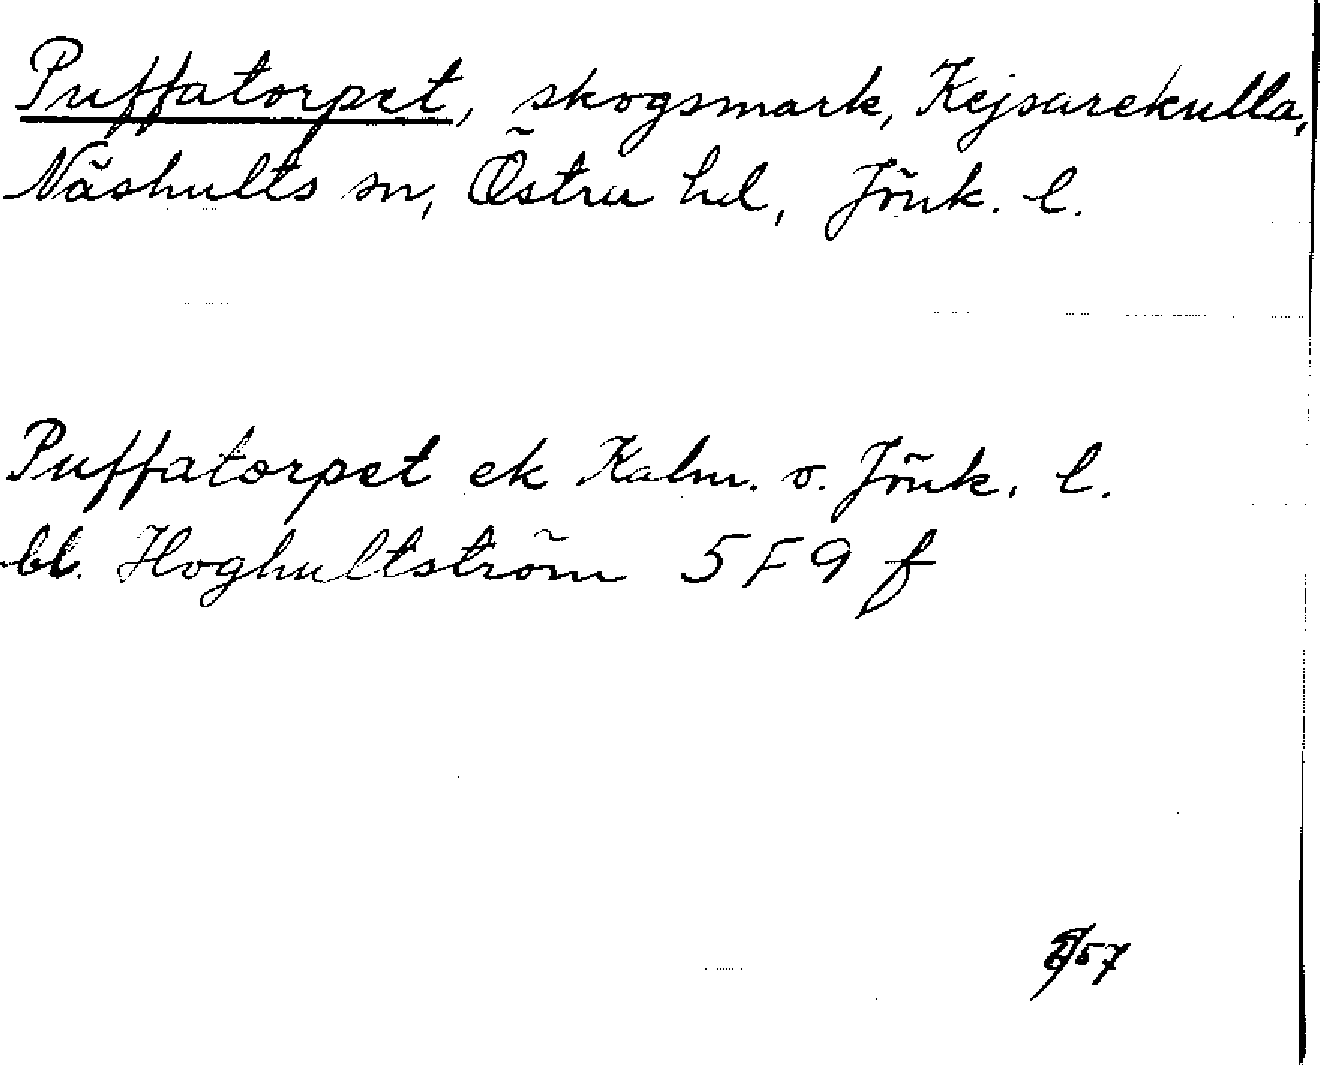 Puffatorpet, skogsmark, Kejsarekulla,
Näshults sn, Östra hd, Jönk. l.
Puffatorpet ek Kalm. o. Jönk. l.
bl. Hoghultström 5F9 f